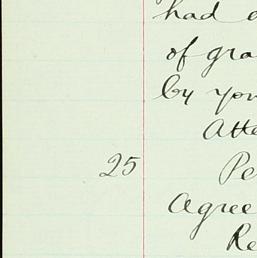 had
of gra
by you
Atte
25 Pe
Agree
Re